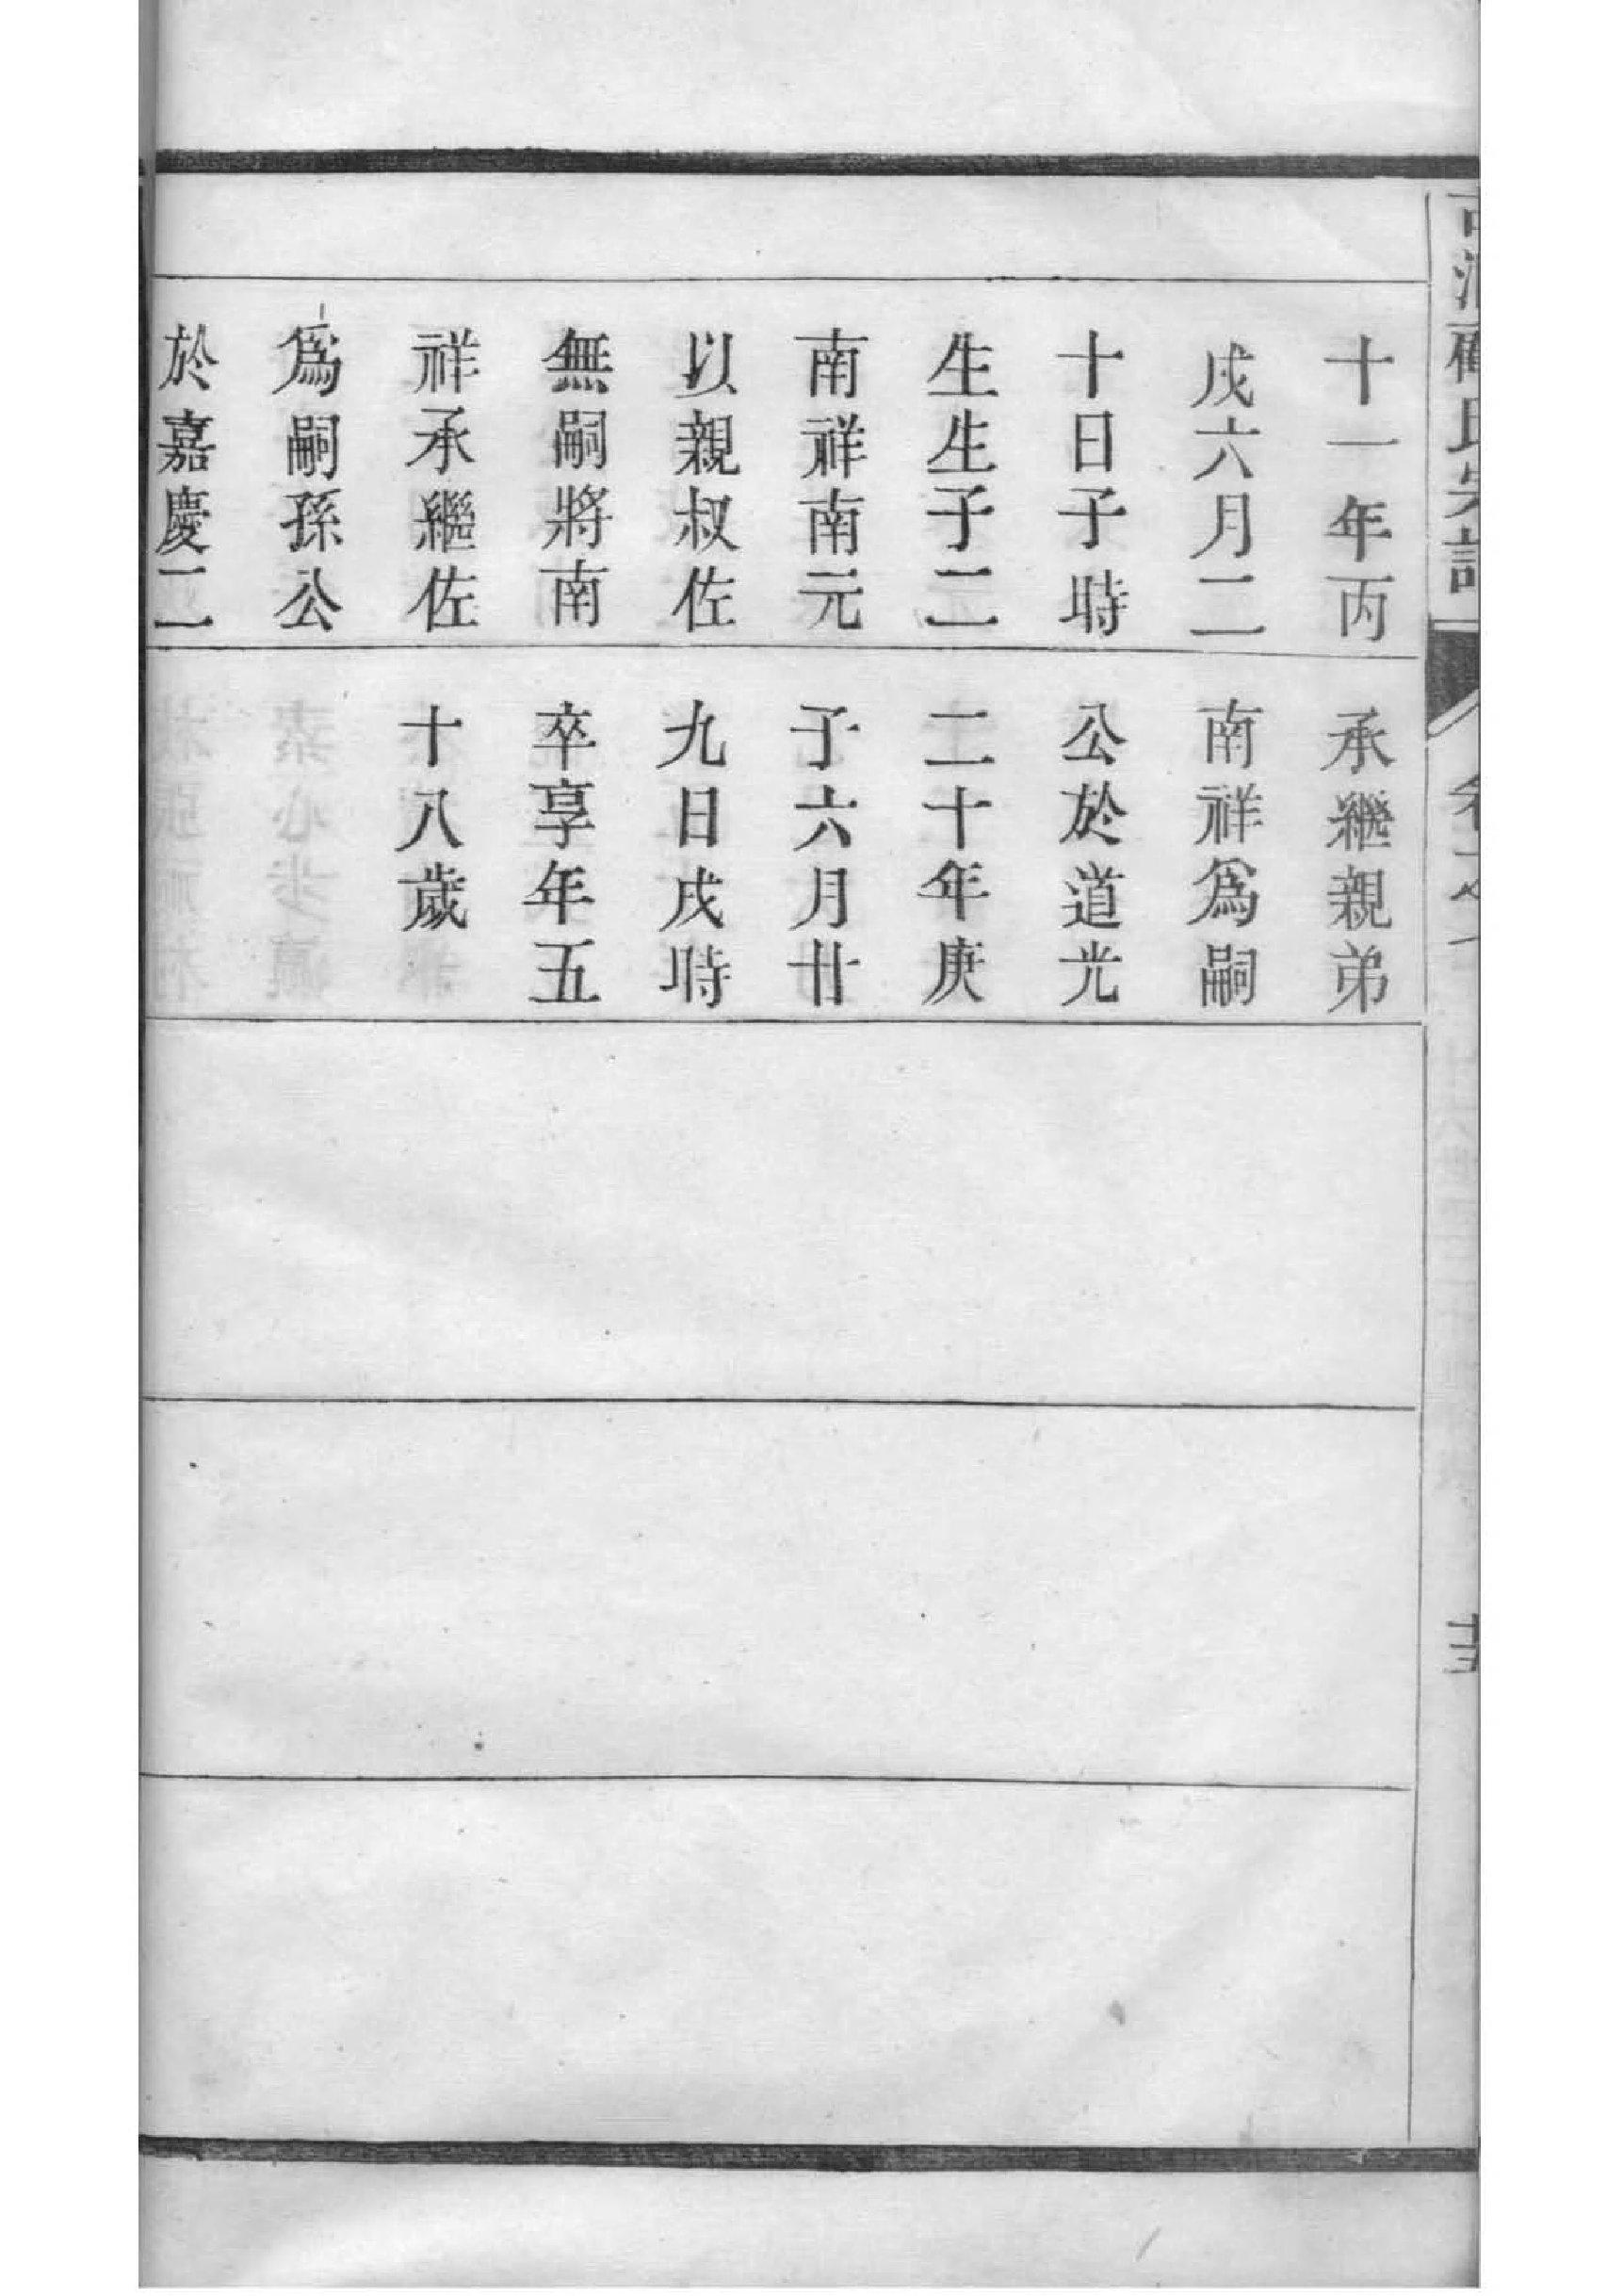 十一年丙
戌六月二
十日子時
生生子二
南祥南元
以親叔佐
無嗣將南
祥承繼佐
爲嗣孫公
於嘉慶二
承繼親弟
南祥爲嗣
公於道光
二十年庚
子六月廿
九日戌時
卒享年五
十八歲